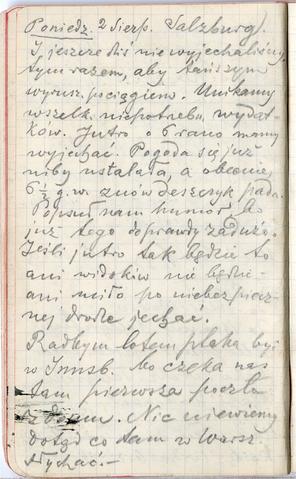 Poniedz. 2 Sierp. Salzburg.
I jeszcze dziś nie wyjechaliśmy
tym razem, aby tańszym
wyrusz. pociągiem. Unikamy
wszelk. niepotrzebn. wydat-
ków. Jutro o 6 rano mamy
wyjechać. Pogoda się już
niby ustalała, a obecnie
6 ½ g. w. znów deszczyk pada.
Popsuł nam humor bo
już tego doprawdy zadużo.
Jeśli jutro tak będzie to
ani widoków nie będzie -
ani miło po niebezpiecz-
nej drodze jechać.
Radbym lotem ptaka być
w Innsb. bo czeka nas
tam pierwsza poczta
z domu. Nic niewiemy
dotąd co tam w Warsz.
słychać.-